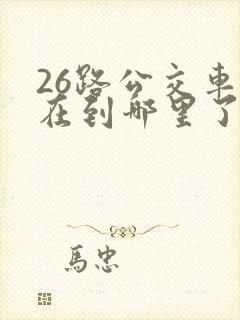 26路公交車
在到哪里了
馬忠